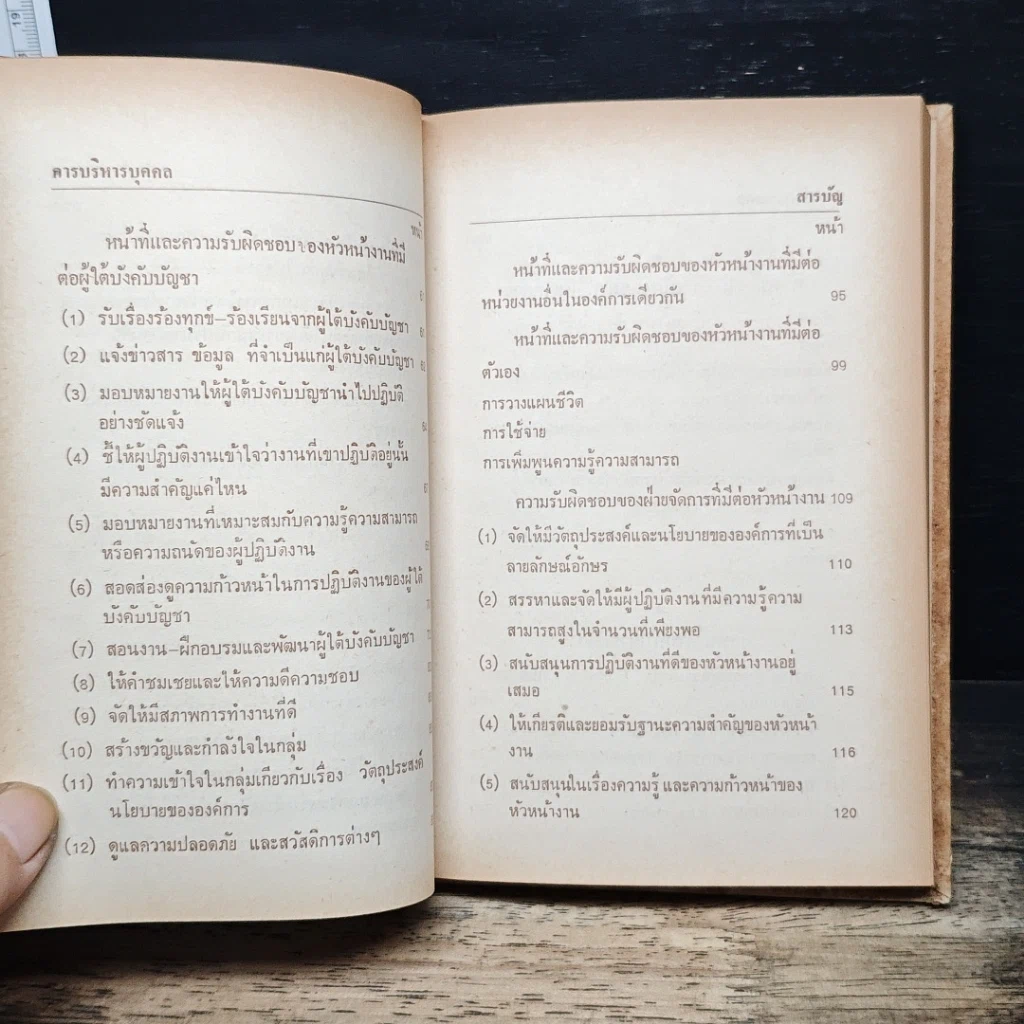 การบริหารบุคคล
หน้า
หน้าที่และความรับผิดชอบของหัวหน้างานที่มี
ต่อผู้ใต้บังคับบัญชา
(1) รับเรื่องร้องทุกข์–ร้องเรียนจากผู้ใต้บังคับบัญชา
(2) แจ้งข่าวสาร ข้อมูล ที่จำเป็นแก่ผู้ใต้บังคับบัญชา
(3) มอบหมายงานให้ผู้ใต้บังคับบัญชานำไปปฏิบัติ
อย่างชัดแจ้ง
(4) ชี้ให้ผู้ปฏิบัติงานเข้าใจว่างานที่เขาปฏิบัติอยู่นั้น
มีความสำคัญแค่ไหน
(5) มอบหมายงานที่เหมาะสมกับความรู้ความสามารถ
หรือความถนัดของผู้ปฏิบัติงาน
(6) สอดส่องดูความก้าวหน้าในการปฏิบัติงานของผู้ใต้
บังคับบัญชา
(7) สอนงาน–ฝึกอบรมและพัฒนาผู้ใต้บังคับบัญชา
(8) ให้คำชมเชยและให้ความดีความชอบ
(9) จัดให้มีสภาพการทำงานที่ดี
(10) สร้างขวัญและกำลังใจในกลุ่ม
(11) ทำความเข้าใจในกลุ่มเกี่ยวกับเรื่อง วัตถุประสงค์
นโยบายขององค์การ
(12) ดูแลความปลอดภัย และสวัสดิการต่างๆ
สารบัญ
หน้า
หน้าที่และความรับผิดชอบของหัวหน้างานที่มีต่อ
หน่วยงานอื่นในองค์การเดียวกัน 95
หน้าที่และความรับผิดชอบของหัวหน้างานที่มีต่อ
ตัวเอง 99
การวางแผนชีวิต
การใช้จ่าย
การเพิ่มพูนความรู้ความสามารถ
ความรับผิดชอบของฝ่ายจัดการที่มีต่อหัวหน้างาน 109
(1) จัดให้มีวัตถุประสงค์และนโยบายขององค์การที่เป็น
ลายลักษณ์อักษร 110
(2) สรรหาและจัดให้มีผู้ปฏิบัติงานที่มีความรู้ความ
สามารถสูงในจำนวนที่เพียงพอ 113
(3) สนับสนุนการปฏิบัติงานที่ดีของหัวหน้างานอยู่
เสมอ 115
(4) ให้เกียรติและยอมรับฐานะความสำคัญของหัวหน้า
งาน 116
(5) สนับสนุนในเรื่องความรู้ และความก้าวหน้าของ
หัวหน้างาน 120